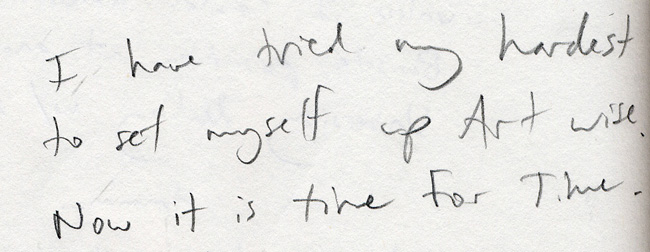 I have tried my hardest
to set myself up Art wise.
Now it is time for Time.